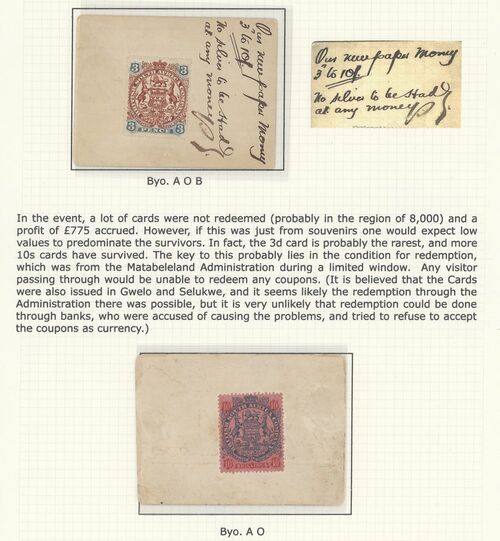 3 3
SOUTH AFRICA
3 3
PENCE
Our new paper Money
3d to 10/.
No silver to be had
at any money
Our new paper Money
3d to 10/.
No silver to be had
at any money
Byo. A O B
In the event, a lot of cards were not redeemed (probably in the region of 8,000) and a
profit of £775 accrued. However, if this was just from souvenirs one would expect low
values to predominate the survivors. In fact, the 3d card is probably the rarest, and more
10s cards have survived. The key to this probably lies in the condition for redemption,
which was from the Matabeleland Administration during a limited window.  Any visitor
passing through would be unable to redeem any coupons. (It is believed that the Cards
were also issued in Gwelo and Selukwe, and it seems likely the redemption through the
Administration there was possible, but it is very unlikely that redemption could be done
through banks, who were accused of causing the problems, and tried to refuse to accept
the coupons as currency.)
10 10
SOUTH AFRICA COMPANY
10 10
SHILLINGS
Byo. A O